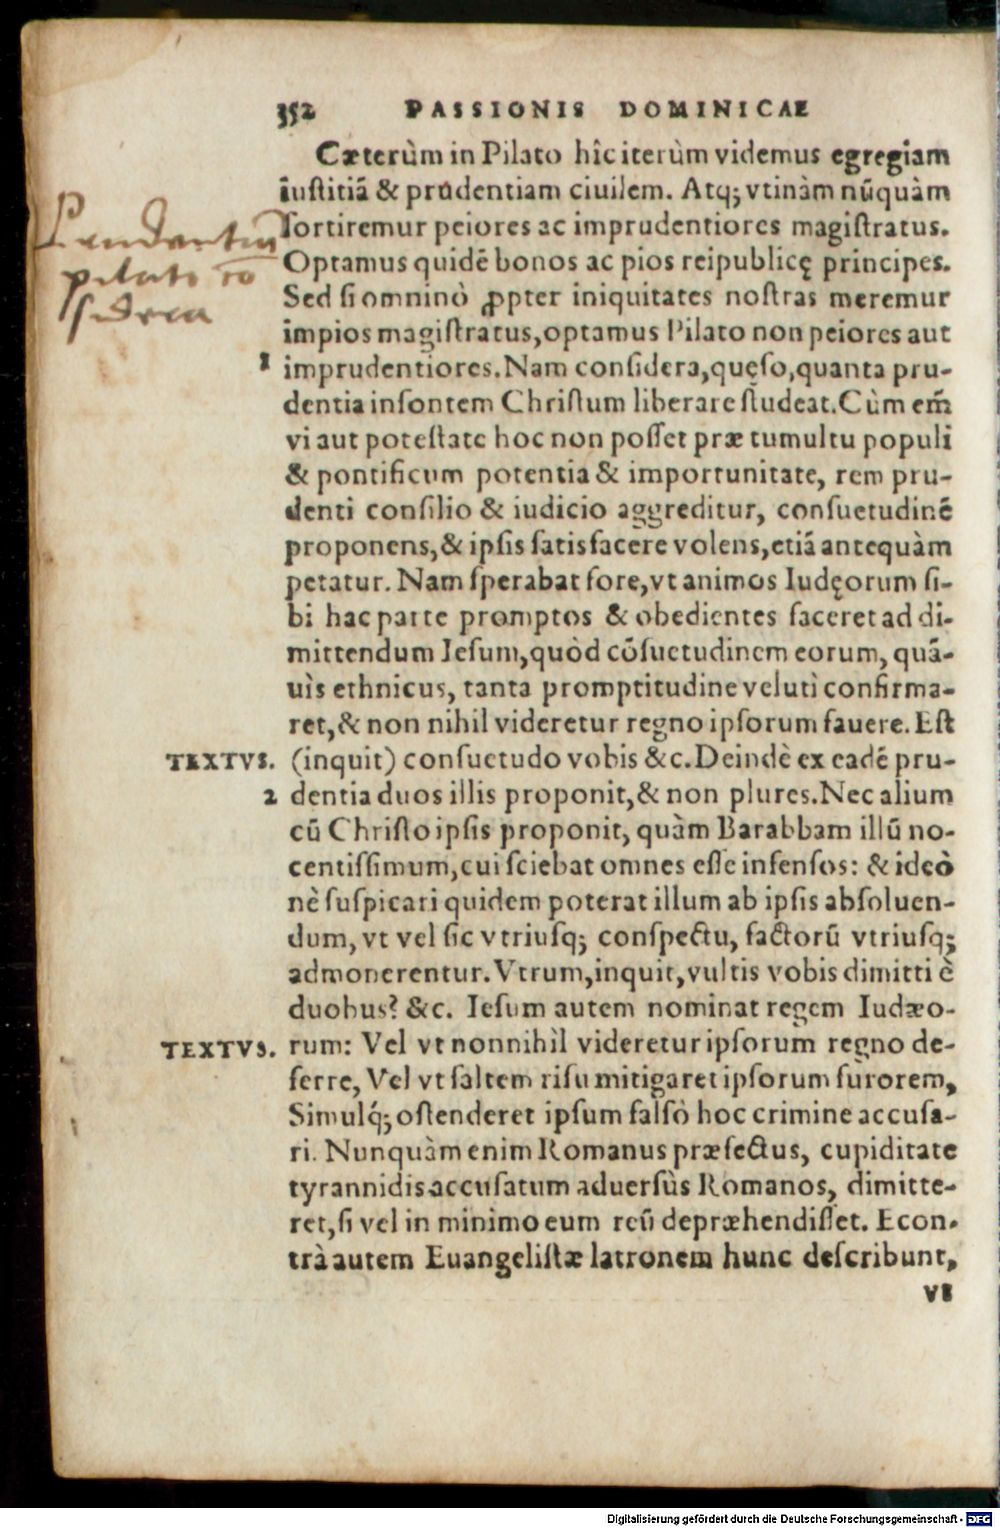 352 PASSIONIS DOMINICAE
Cæterùm in Pilato hîc iterùm videmus egregiam
iustitiã & prudentiam ciuilem. Atq; vtinàm nũquàm
sortiremur peiores ac imprudentiores magistratus.
Optamus quidẽ bonos ac pios reipublicę principes.
Sed si omninò ꝓpter iniquitates nostras meremur
impios magistratus, optamus Pilato non peiores aut
1 imprudentiores. Nam considera, quęso, quanta pru-
dentia insontem Christum liberare studeat. Cùm em̃
vi aut potestate hoc non posset præ tumultu populi
& pontificum potentia & importunitate, rem pru-
denti consilio & iudicio aggreditur, consuetudinẽ
proponens, & ipsis satisfacere volens, etiã antequàm
petatur. Nam sperabat fore, vt animos Iudęorum si-
bi hac parte promptos & obedientes faceret ad di-
mittendum Iesum, quòd cõsuetudinem eorum, quã-
uìs ethnicus, tanta promptitudine velutì confirma-
ret, & non nihil videretur regno ipsorum fauere. Est
TEXTVS. (inquit) consuetudo vobis &c. Deindè ex eadẽ pru-
2 dentia duos illis proponit, & non plures. Nec alium
cũ Christo ipsis proponit, quàm Barabbam illũ no-
centissimum, cui sciebat omnes esse infensos: & ideò
nè suspicari quidem poterat illum ab ipsis absoluen-
dum, vt vel sic vtriusq; conspectu, factorũ vtriusq;
admonerentur. Vtrum, inquit, vultis vobis dimitti è
duobus? &c. Iesum autem nominat regem Iudæo-
TEXTVS. rum: Vel vt nonnihìl videretur ipsorum regno de-
ferre, Vel vt saltem risu mitigaret ipsorum furorem,
Simulq́; ostenderet ipsum falsò hoc crimine accusa-
ri. Nunquàm enim Romanus præfectus, cupiditate
tyrannidis accusatum aduersùs Romanos, dimitte-
ret, si vel in minimo eum reũ depræhendisset. Econ-
trà autem Euangelistæ latronem hunc describunt,
vt
Prudentiam
pilati cõ
sidera
Digitalisierung gefördert durch die Deutsche Forschungsgemeinschaft - DFG